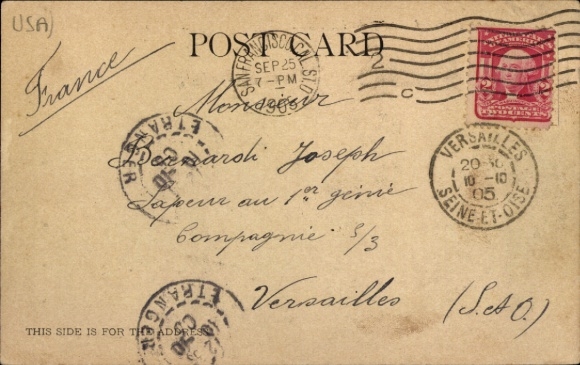 USA
POST CARD
France
SAN FRANCISCO, CAL. STA.
SEP 25
7-PM
1905
2
C
TWO CENTS
Monsieur
Bernardi Joseph
Sapeur au 1er génie
Compagnie 5/3
Versailles
(S.&O.)
VERSAILLES
10-10
05
SEINE-ET-OISE
ETRANGER
ETRANGER
THIS SIDE IS FOR THE ADDRESS